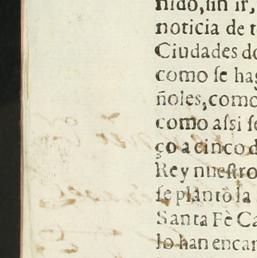 nido, sin ir,
noticia de t
Ciudades do
como se hag
ñoles, como
como assi se
ço a cinco d
Rey nuestro
se plantò la
Santa Fè Ca
lo han encar